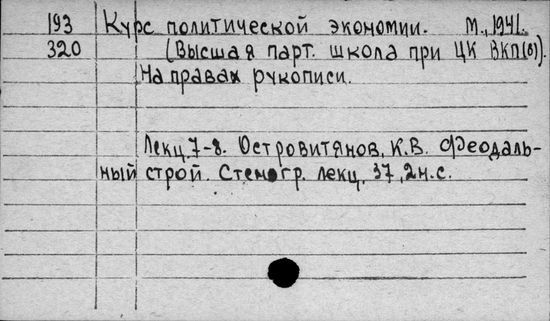 193 Курс политической экономии. М., 1941.
320 (Высшая парт. школа при ЦК ВКП(б)).
На правах рукописи.
Лекц. 7-8. Островитянов, К.В. Феодаль-
ный строй. Стеногр. лекц. 37, 2н.с.